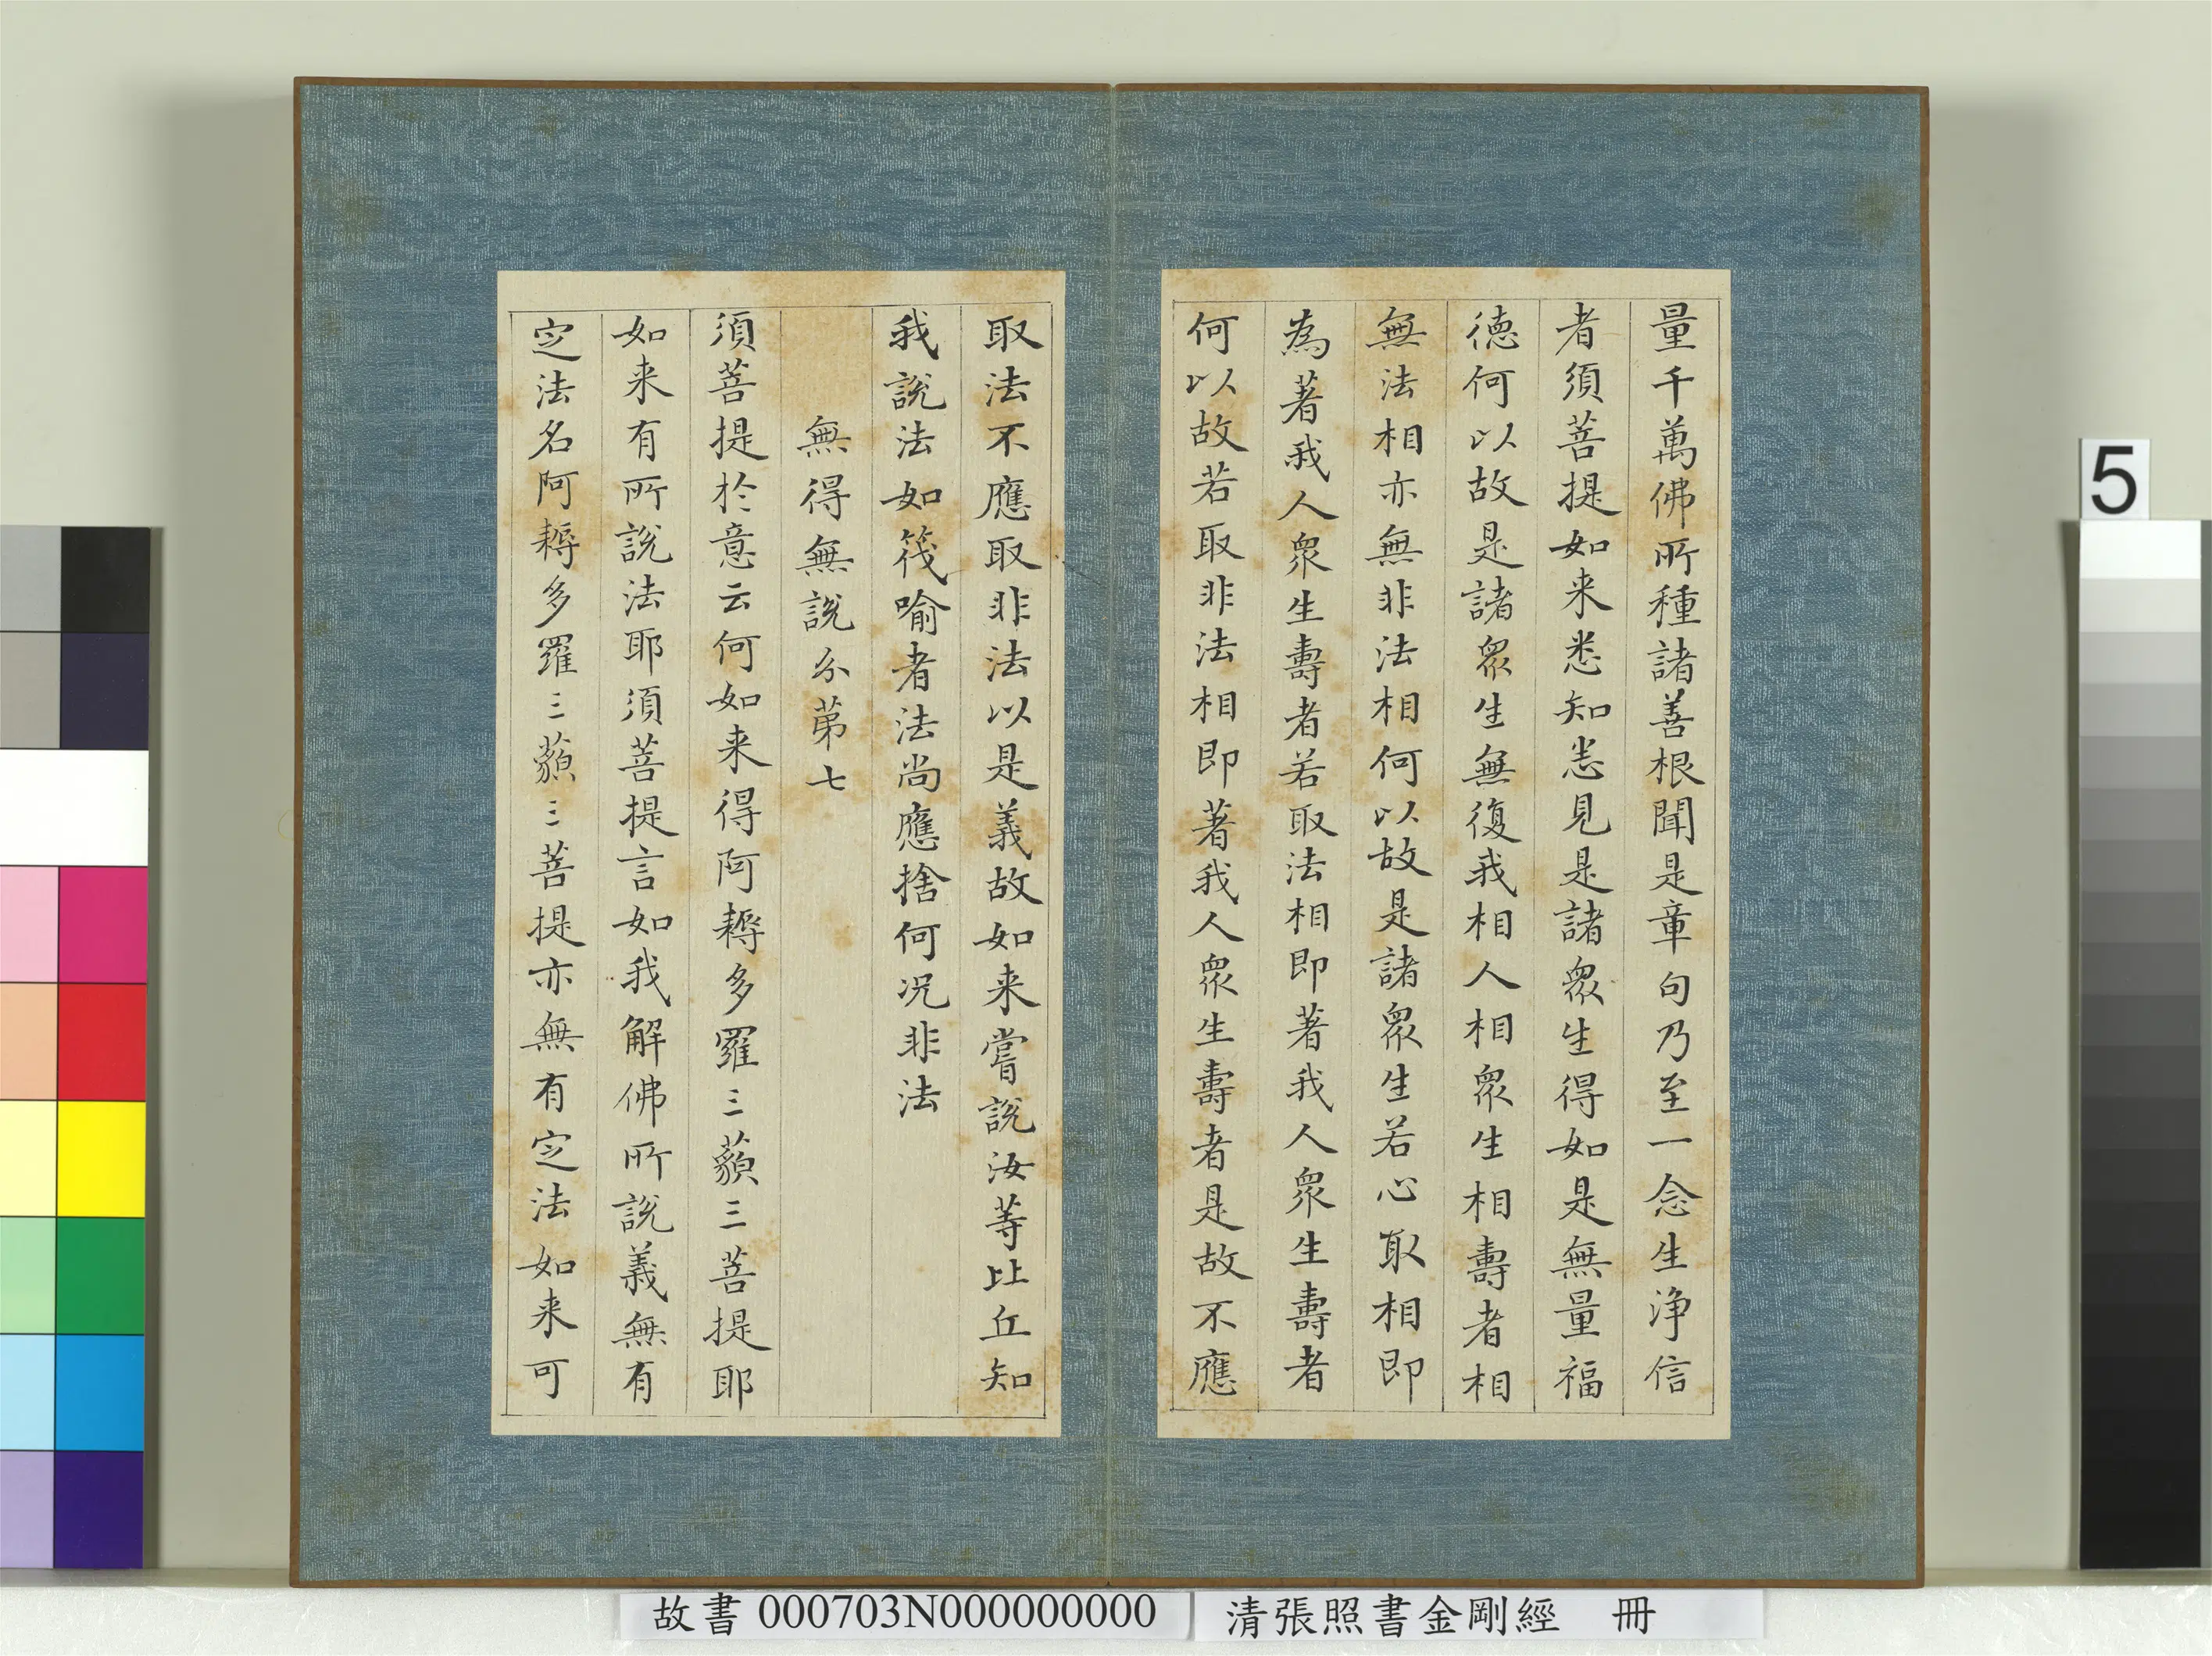 量千萬佛所種諸善根聞是章句乃至一念生淨信
者須菩提如来悉知悉見是諸衆生得如是無量福
德何以故是諸衆生無復我相人相衆生相壽者相
無法相亦無非法相何以故是諸衆生若心取相即
為著我人衆生壽者若取法相即著我人衆生壽者
何以故若取非法相即著我人衆生壽者是故不應
取法不應取非法以是義故如来嘗說汝等比丘知
我說法如筏喻者法尚應捨何况非法
無得無說分第七
須菩提於意云何如来得阿耨多羅三藐三菩提耶
如来有所說法耶須菩提言如我解佛所說義無有
定法名阿耨多羅三藐三菩提亦無有定法如来可
5
故書 000703N000000000
清張照書金剛經 冊